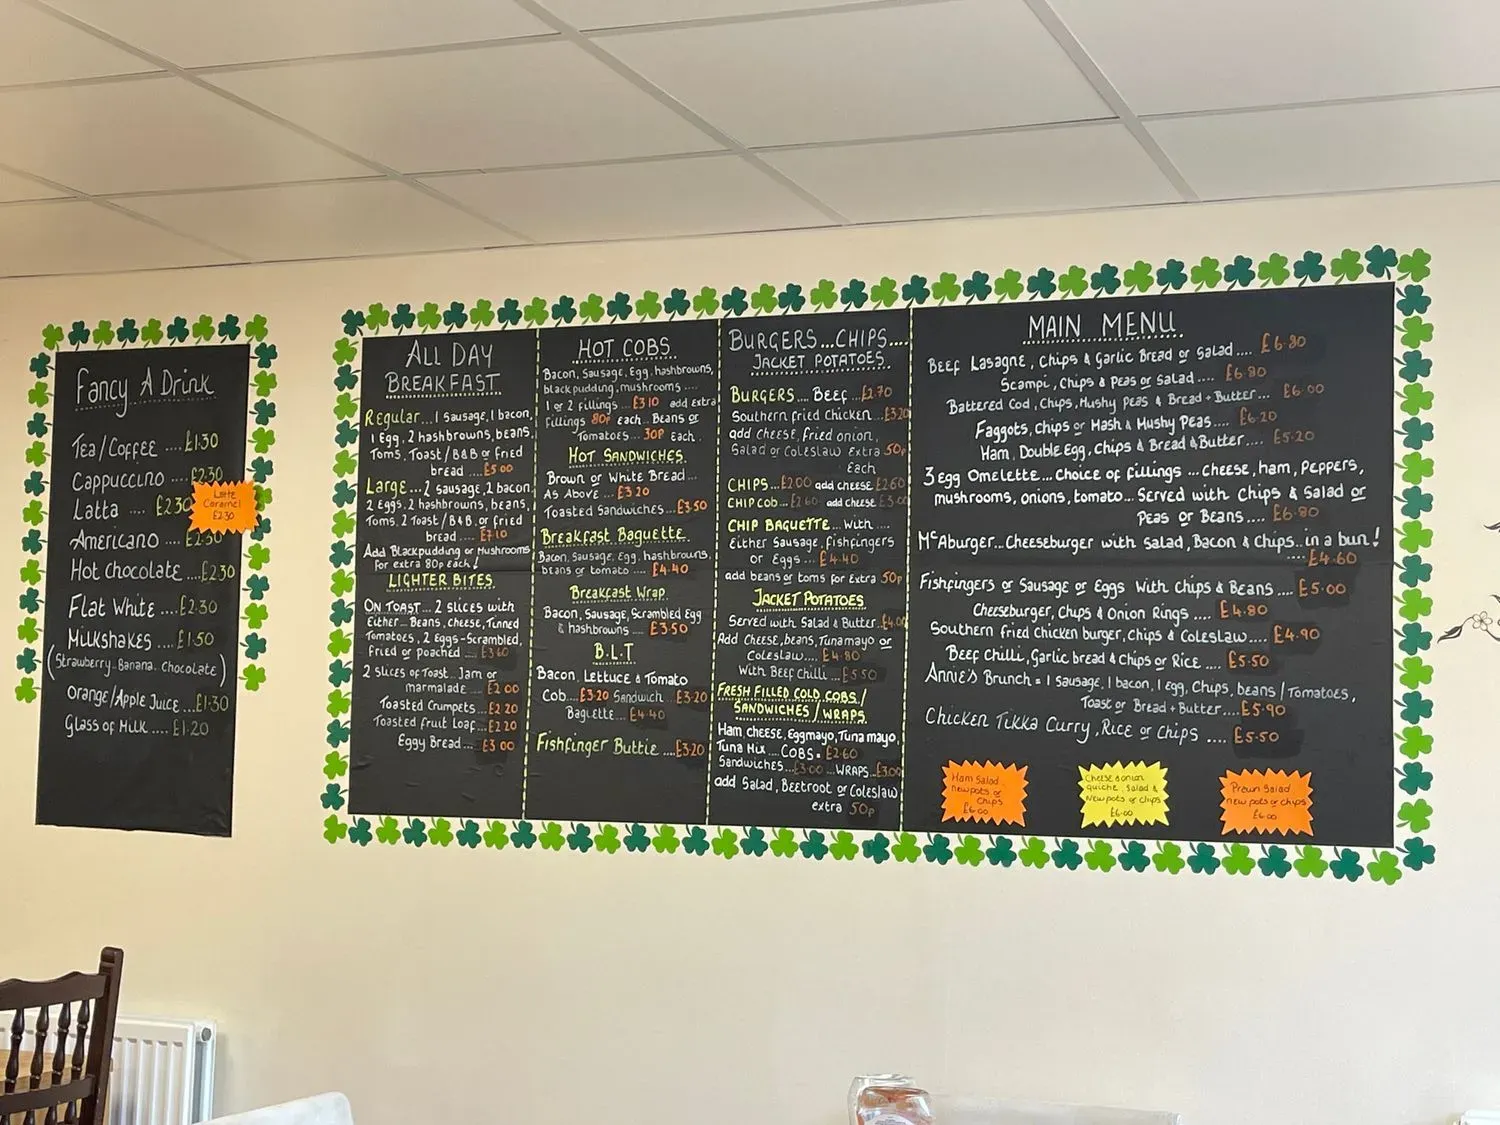 Fancy A Drink
Tea/Coffee ....£1.30
Cappuccino ....£2.30
Latta .... £2.30
Latte
Caramel
£2.30
Americano ... £2.30
Hot Chocolate ....£2.30
Flat White ....£2.30
Milkshakes ....£1.50
(Strawberry. Banana. Chocolate)
Orange/Apple Juice ....£1.30
Glass of Milk ....£1.20
ALL DAY
BREAKFAST
Regular... 1 sausage, 1 bacon,
1 Egg, 2 hashbrowns, beans,
Toms, Toast/B&B or fried
bread ....£5.00
Large... 2 sausage, 2 bacon
2 Eggs, 2 hashbrowns, beans,
Toms, 2 Toast/B&B or fried
bread ... £7.10
Add Blackpudding or Mushrooms
for extra 80p each!
LIGHTER BITES
On Toast... 2 slices with
Either... Beans, cheese, Tunned
Tomatoes, 2 Eggs-Scrambled,
Fried or poached ...£3.60
2 Slices of Toast... Jam or
marmalade ...£2.00
Toasted Crumpets...£2.20
Toasted fruit Loaf...£2.20
Eggy Bread... £3.00
HOT COBS
Bacon, Sausage, Egg, hashbrowns,
blackpudding, mushrooms ....
1 or 2 fillings ...£3.10 add extra
fillings 80p each... Beans or
Tomatoes... 30p Each.
HOT SANDWICHES
Brown or White Bread...
As Above ...£3.20
Toasted Sandwiches...£3.50
Breakfast Baguette.
Bacon, Sausage, Egg, hashbrowns,
beans or tomato .... £4.40
Breakfast Wrap
Bacon, Sausage, Scrambled Egg
& hashbrowns .... £3.50
B.L.T
Bacon, Lettuce & Tomato
Cob...£3.20 Sandwich...£3.20
Baglette...£4.40
Fishfinger Buttie ....£3.20
BURGERS...CHIPS....
JACKET POTATOES.
BURGERS.... Beef ...£2.70
Southern fried Chicken...£3.20
add cheese, fried onion,
Salad or Coleslaw Extra 50p
Each
CHIPS...£2.00 add cheese £2.60
CHIP COB...£2.60 add cheese £3.00
CHIP BAGUETTE... With ....
Either Sausage, fishfingers
or Eggs ...£4.40
add beans or toms for Extra 50p
JACKET POTATOES
Served with Salad & Butter...£4.00
Add Cheese, beans, Tunamayo or
Coleslaw....£4.80
With Beef chilli ...£5.50
FRESH FILLED COLD COBS/
SANDWICHES/WRAPS.
Ham, cheese, Eggmayo, Tuna mayo,
Tuna Mix ...COBS = £2.60
Sandwiches...£3.00...WRAPS...£3.00
add Salad, Beetroot or Coleslaw
extra 50p
MAIN MENU.
Beef Lasagne, Chips & Garlic Bread or Salad.... £6.80
Scampi, Chips & Peas or Salad .... £6.80
Battered Cod, Chips, Mushy Peas & Bread + Butter... £6.00
Faggots, Chips or Mash & Mushy Peas.... £6.20
Ham, Double Egg, Chips & Bread & Butter.... £5.20
3 Egg Omelette... Choice of fillings ... cheese, ham, Peppers,
mushrooms, onions, tomato... Served with Chips & Salad or
Peas or Beans .... £6.80
McAburger... Cheeseburger with salad, Bacon & Chips.. in a bun!
....£4.60
Fishfingers or Sausage or Eggs with Chips & Beans....£5.00
Cheeseburger, Chips & Onion Rings .... £4.80
Southern fried chicken burger, chips & Coleslaw....£4.90
Beef Chilli, Garlic bread & Chips or Rice .... £5.50
Annie's Brunch = 1 Sausage, 1 bacon, 1 egg, Chips, beans/Tomatoes,
Toast or Bread + Butter....£5.90
Chicken Tikka Curry, Rice or Chips .... £5.50
Ham Salad
new pots or
chips
£6.00
Cheese & onion
quiche, Salad &
New pots or chips
£6.00
Prawn Salad
new pots or chips
£6.00